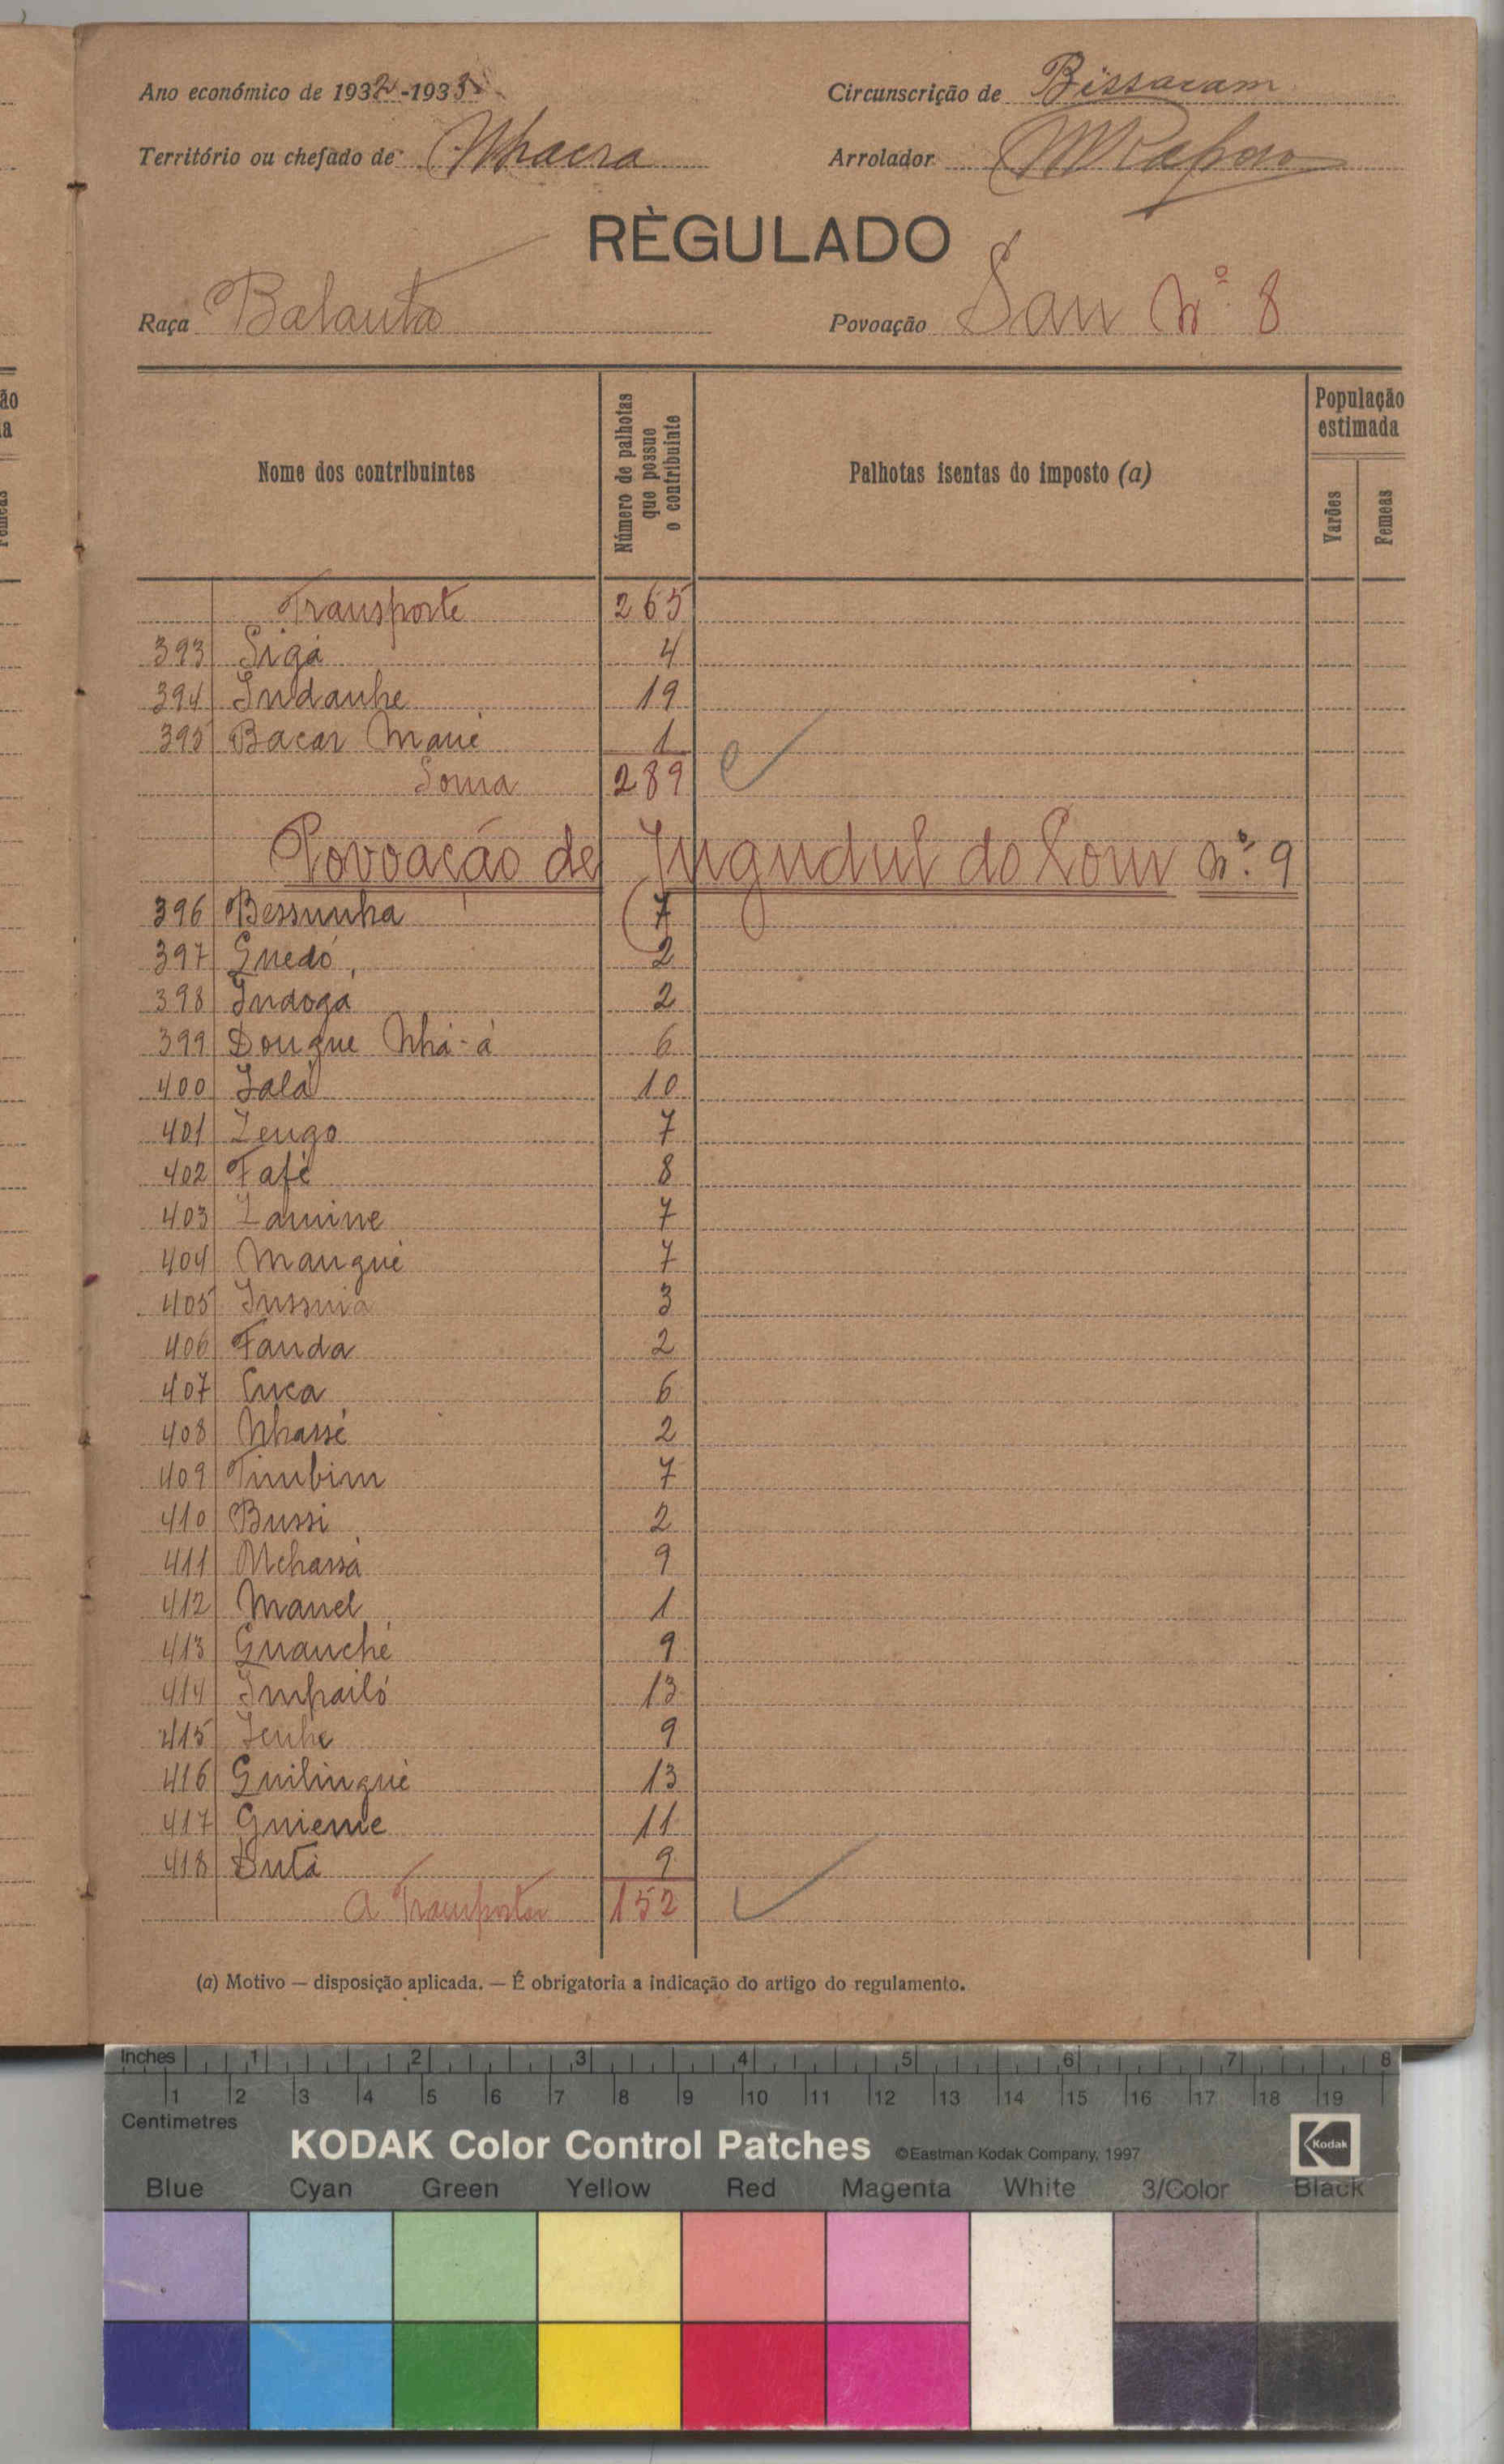 Ano económico de 1932-1933
Circunscrição de Bissaram
Território ou chefado de Nhacra
Arrolador
RÈGULADO
Raça Balanta
Povoação San Nº 8
Nome dos contribuintes
Número de palhotas que possue o contribuinte
Palhotas isentas do imposto (a)
População estimada
Varões
Femeas
Transporte 265
393 Sigá 4
394 Indanhe 19
395 Bacar Mané 1
Soma 289
Povoação de Jugudul do Som Nº 9
396 Bessunha 7
397 Guedó 2
398 Indogá 2
399 Dougue Nhá-á 6
400 Jalá 10
401 Zengo 7
402 Fafé 8
403 Lamine 7
404 Mangué 7
405 3
406 Fanda 2
407 Cuca 6
408 Nhassé 2
409 Timbim 7
410 Bussi 2
411 Nchassá 9
412 Manel 1
413 Guanché 9
414 Impailó 13
415 Jenhe 9
416 Guilingué 13
417 Guieme 11
418 Dutá 9
A Transportar 152
(a) Motivo — disposição aplicada. — É obrigatoria a indicação do artigo do regulamento.
Inches 1 2 3 4 5 6 7 8
1 2 3 4 5 6 7 8 9 10 11 12 13 14 15 16 17 18 19
Centimetres
KODAK Color Control Patches ©Eastman Kodak Company, 1997 Kodak
Blue Cyan Green Yellow Red Magenta White 3/Color Black